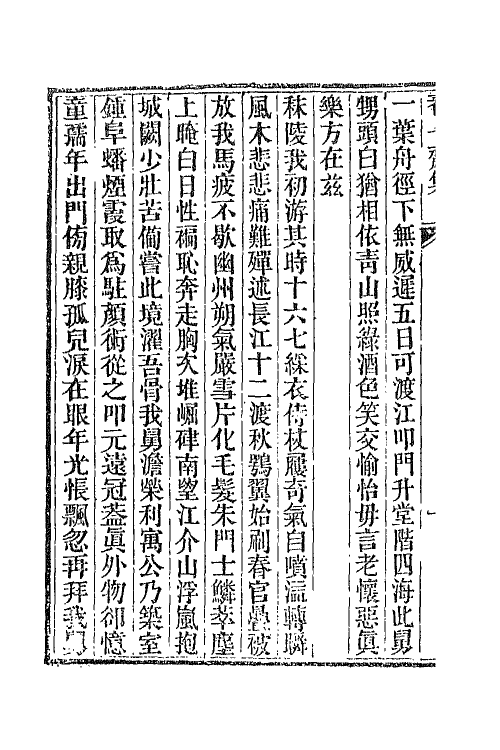 一葉舟徑下無威遲五日可渡江叩門升堂階四海此舅
甥頭白猶相依靑山照綠酒色笑交愉怡毋言老懷惡眞
樂方在茲
秣陵我初游其時十六七綵衣侍杖屨奇氣自噴溢轉瞬
風木悲悲痛難殫述長江十二渡秋鶚翼始刷春官疊被
放我馬疲不歇幽州朔氣嚴雪片化毛髮朱門士鱗萃塵
上晻白日性褊恥奔走胸次堆崛硉南望江介山浮嵐抱
城闕少壯苦備嘗此境濯吾骨我舅澹榮利寓公乃築室
鍾阜蟠煙霞取爲駐顏術從之叩元遠冠葢眞外物卻憶
童孺年出門傍親膝孤兒淚在眼年光悵飄忽再拜我